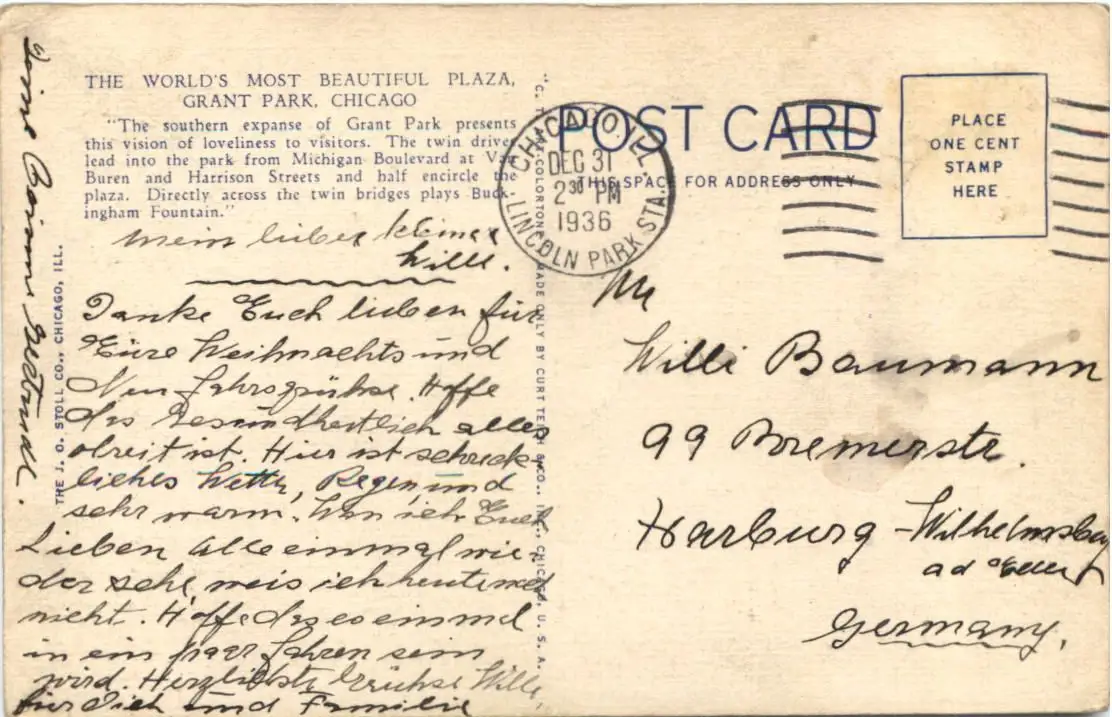 THE WORLD'S MOST BEAUTIFUL PLAZA,
GRANT PARK, CHICAGO
"The southern expanse of Grant Park presents
this vision of loveliness to visitors. The twin drives
lead into the park from Michigan Boulevard at Van
Buren and Harrison Streets and half encircle the
plaza. Directly across the twin bridges plays Buck-
ingham Fountain."
Mein lieber kleiner
Willi.
Danke Euch lieben für
Eure Weihnachts und
Neu Jahrsgrühse. Hoffe
das Gesundheitlich alles
obreit ist. Hier ist schreck-
liches Wetter, Regen und
sehr warm. Wan ich Euch
Lieben alle einmal wie-
der sehe, weis ich heute
nicht. Hoffe das es einmal
in ein paar Jahren sein
wird. Herzlichste Grühse Willi,
für Dich und Familie
Gertrude.
THE J. O. STOLL CO., CHICAGO, ILL.
MADE ONLY BY CURT TEICH & CO., INC., CHICAGO, U. S. A.
POST CARD
THIS SPACE FOR ADDRESS ONLY
CHICAGO, ILL.
DEC 31
2 30 PM
1936
LINCOLN PARK STA.
PLACE
ONE CENT
STAMP
HERE
Willi Baumann
99 Bremerstr.
Harburg-Wilhelmsburg
Germany.